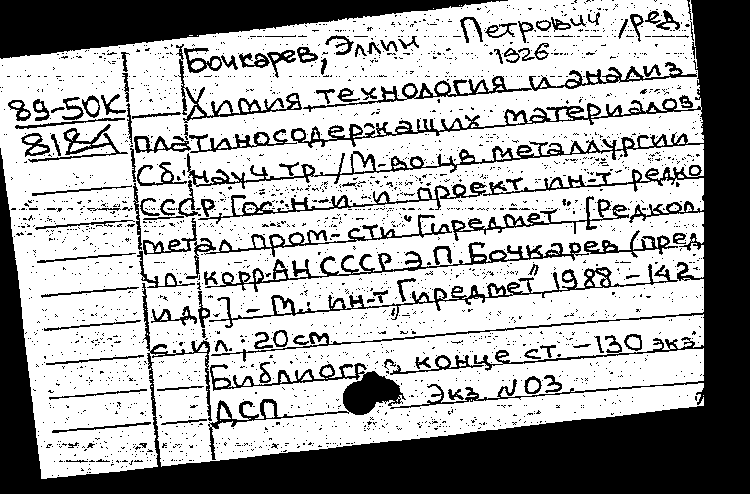 Бочкарев, Эллин Петрович, ред.
1926
89-50К
8184
Химия, технология и анализ
платиносодержащих материалов.
Сб. науч. тр. / М-во цв. металлургии
СССР, Гос. н.-и. и проект. ин-т редко
метал. пром-сти "Гиредмет"; [Редкол.:
чл.-корр. АН СССР Э.П. Бочкарев (пред.)
и др.]. - М.: ин-т „Гиредмет", 1988. - 142
с.: ил.; 20 см.
Библиогр. в конце ст. - 130 экз.
ДСП. Экз. N 03.